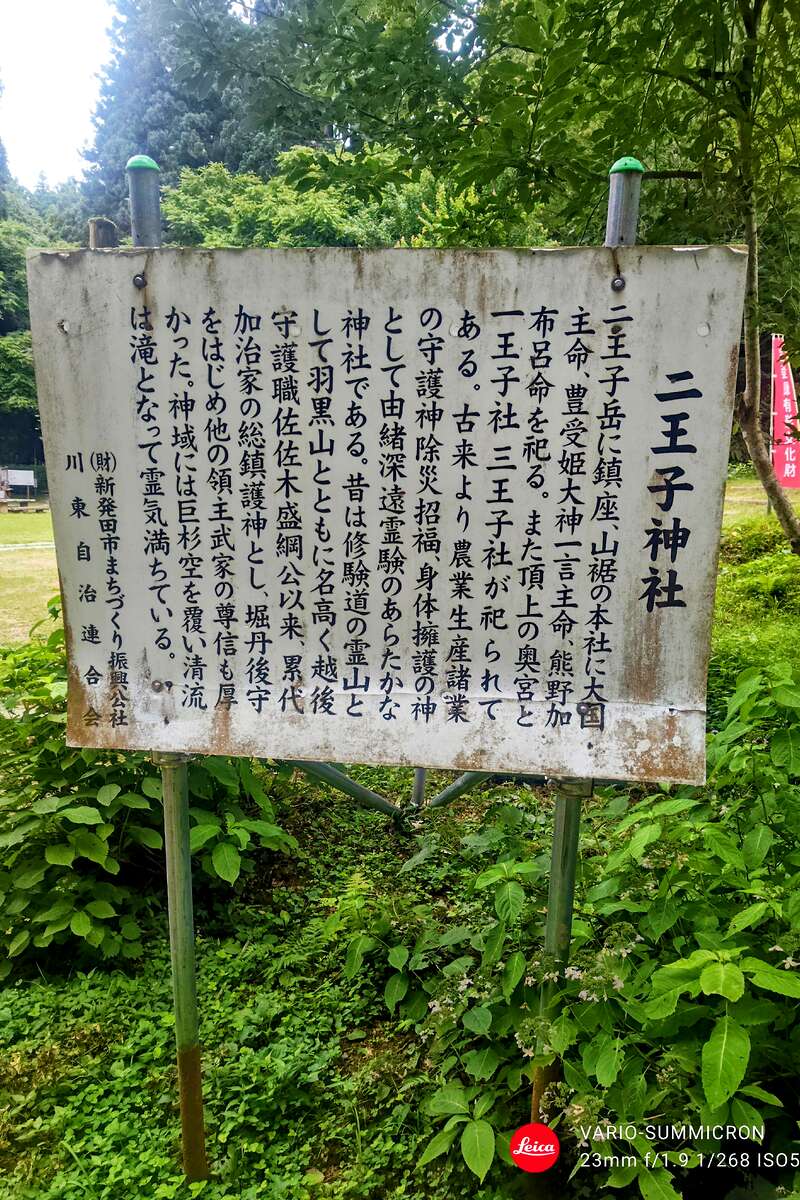 二王子神社
二王子岳に鎮座、山裾の本社に大国
主命、豊受姫大神一言主命、熊野加
布呂命を祀る。また頂上の奥宮と
一王子社 三王子社が祀られて
ある。古来より農業生産諸業
の守護神除災招福、身体擁護の神
として由緒深遠霊験のあらたかな
神社である。昔は修験道の霊山と
して羽黒山とともに名高く越後
守護職佐佐木盛綱公以来、累代
加治家の総鎮護神とし、堀丹後守
をはじめ他の領主武家の尊信も厚
かった。神域には巨杉空を覆い清流
は滝となって霊気満ちている。
(財)新発田市まちづくり振興公社
川東自治連合会
有形文化財
Leica
VARIO-SUMMICRON
23mm f/1.9 1/268 ISO5